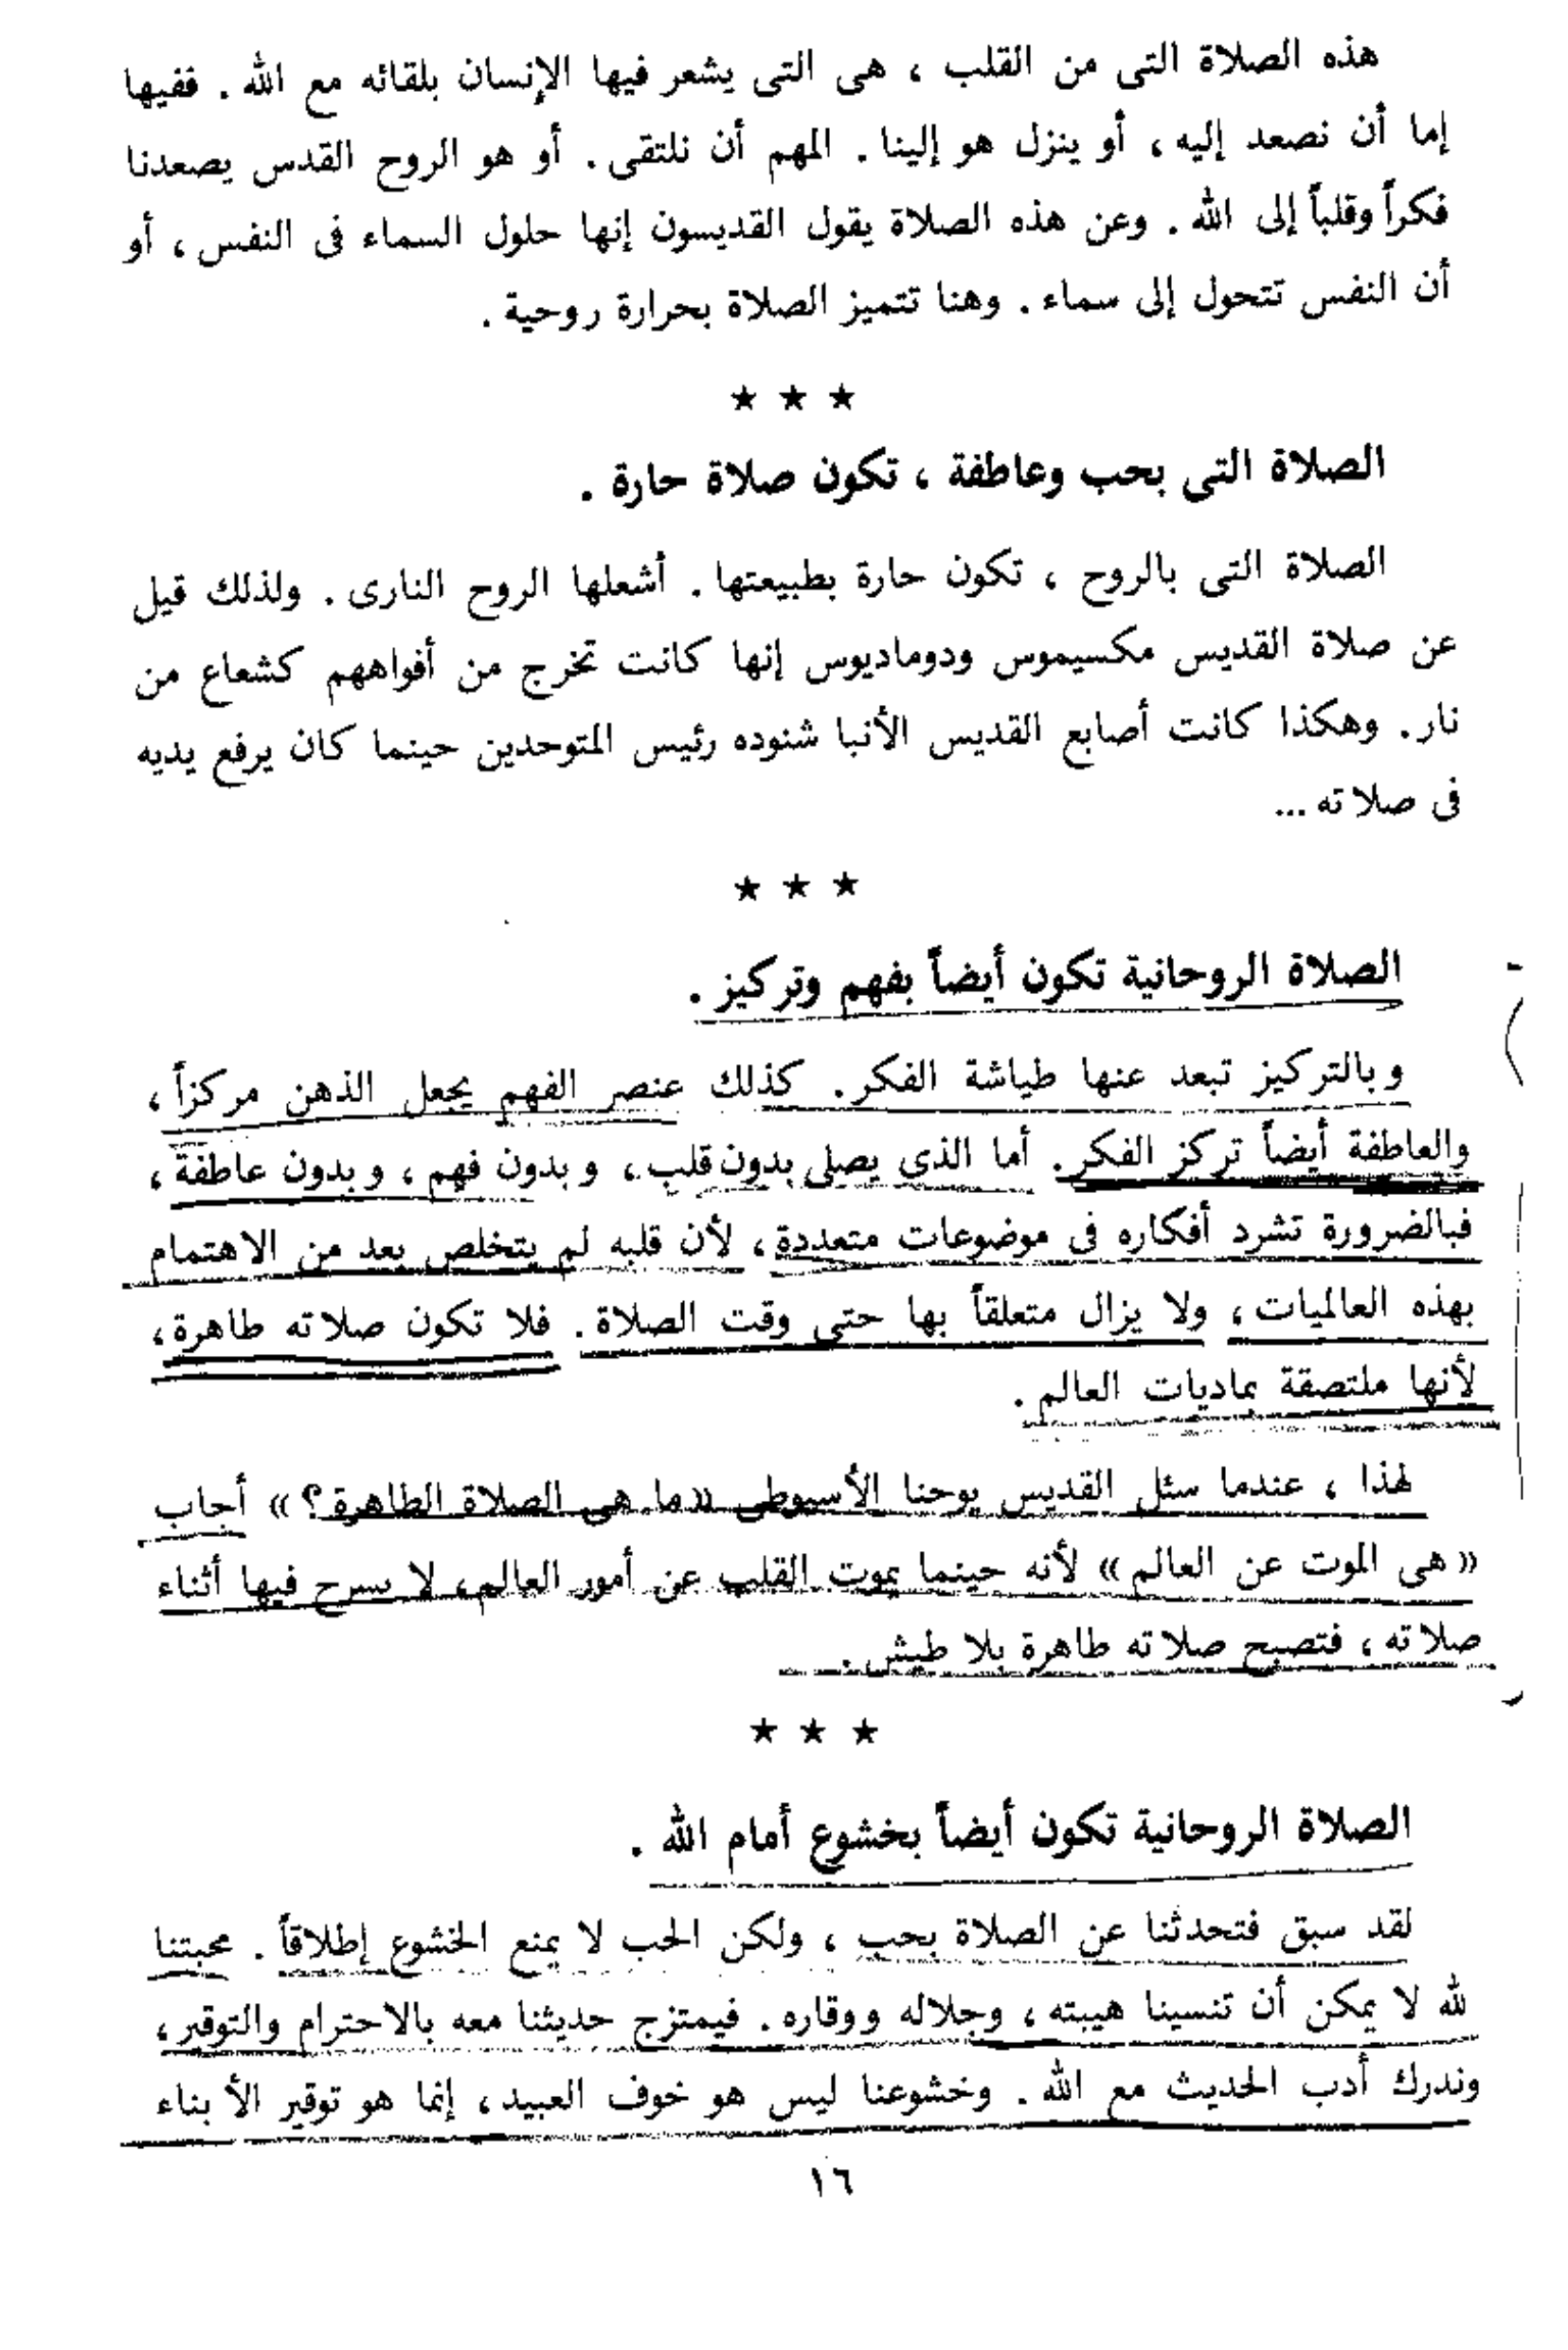 هذه الصلاة التى من القلب ، هى التى يشعر فيها الإنسان بلقائه مع الله . ففيها
إما أن نصعد إليه ، أو ينزل هو إلينا . المهم أن نلتقى . أو هو الروح القدس يصعدنا
فكراً وقلباً إلى الله . وعن هذه الصلاة يقول القديسون إنها حلول السماء فى النفس ، أو
أن النفس تتحول إلى سماء . وهنا تتميز الصلاة بحرارة روحية .
★ ★ ★
الصلاة التى بحب وعاطفة ، تكون صلاة حارة .
الصلاة التى بالروح ، تكون حارة بطبيعتها . أشعلها الروح النارى . ولذلك قيل
عن صلاة القديس مكسيموس ودوماديوس إنها كانت تخرج من أفواههم كشعاع من
نار . وهكذا كانت أصابع القديس الأنبا شنوده رئيس المتوحدين حينما كان يرفع يديه
فى صلاته ...
★ ★ ★
الصلاة الروحانية تكون أيضاً بفهم وتركيز .
وبالتركيز تبعد عنها طياشة الفكر . كذلك عنصر الفهم يجعل الذهن مركزاً ،
والعاطفة أيضاً تركز الفكر . أما الذى يصلى بدون قلب ، وبدون فهم ، وبدون عاطفة ،
فبالضرورة تشرد أفكاره فى موضوعات متعددة ، لأن قلبه لم يتخلص بعد من الاهتمام
بهذه العالميات ، ولا يزال متعلقاً بها حتى وقت الصلاة . فلا تكون صلاته طاهرة ،
لأنها ملتصقة بماديات العالم .
لهذا ، عندما سئل القديس يوحنا الأسيوطى «ما هى الصلاة الطاهرة ؟» أجاب
«هى الموت عن العالم» لأنه حينما يموت القلب عن أمور العالم ، لا يسرح فيها أثناء
صلاته ، فتصبح صلاته طاهرة بلا طيش .
★ ★ ★
الصلاة الروحانية تكون أيضاً بخشوع أمام الله .
لقد سبق فتحدثنا عن الصلاة بحب ، ولكن الحب لا يمنع الخشوع إطلاقاً . محبتنا
لله لا يمكن أن تنسينا هيبته ، وجلاله ووقاره . فيمتزج حديثنا معه بالاحترام والتوقير ،
وندرك أدب الحديث مع الله . وخشوعنا ليس هو خوف العبيد ، إنما هو توقير الأبناء
١٦